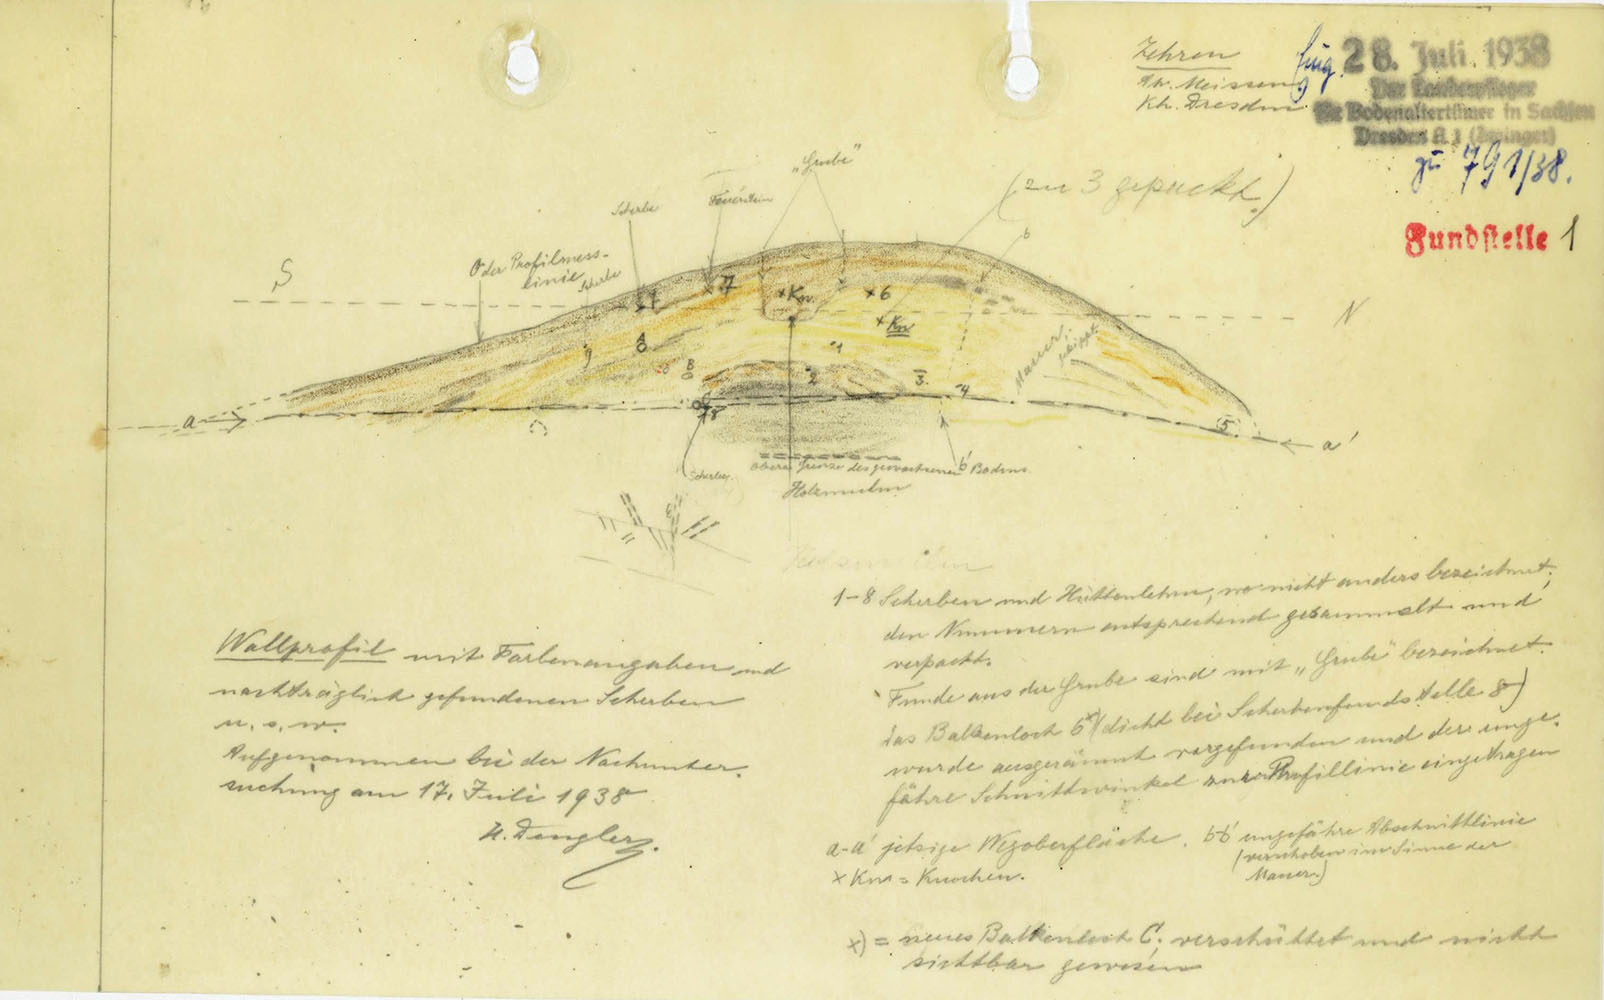 Zehren
Ah. Meissen
Kh. Dresden
Eing. 28. Juli 1938
Der Landespfleger
für Bodenaltertümer in Sachsen
Dresden A 1 (Zwinger)
zu 791/38.
Fundstelle 1
„Grube"
(zu 3 gepackt.)
Scherbe
Feuerstein
b
0 der Profilmess-
linie
Scherbe
S
N
7
×Kn.
×6
×Kn
9
A
B
1
2
3.
4
Mauer!
gekippt.
5
8
a
a'
Scherben
obere Grenze des gewachsenen Bodens
b'
Holzmulm
Holzmulm
1–8 Scherben und Hüttenlehm, wo nicht anders bezeichnet,
den Nummern entsprechend gesammelt und
verpackt.
Funde aus der Grube sind mit „Grube" bezeichnet.
das Balkenloch 6 ×) (dicht bei Scherbenfundstelle 8)
wurde ausgeräumt vorgefunden und der unge-
fähre Schnittwinkel zur Profillinie eingetragen
Wallprofil mit Farbenangaben und
nachträglich gefundenen Scherben
u. s. w.
Aufgenommen bei der Nachunter-
suchung am 17. Juli 1938
H. Dengler.
a-a' jetzige Wegoberfläche. bb' ungefähre Abschnittlinie
(verschoben im Sinne der
Mauer.)
× Kn = Knochen.
×) = neues Balkenloch C, verschüttet und nicht
sichtbar gewesen